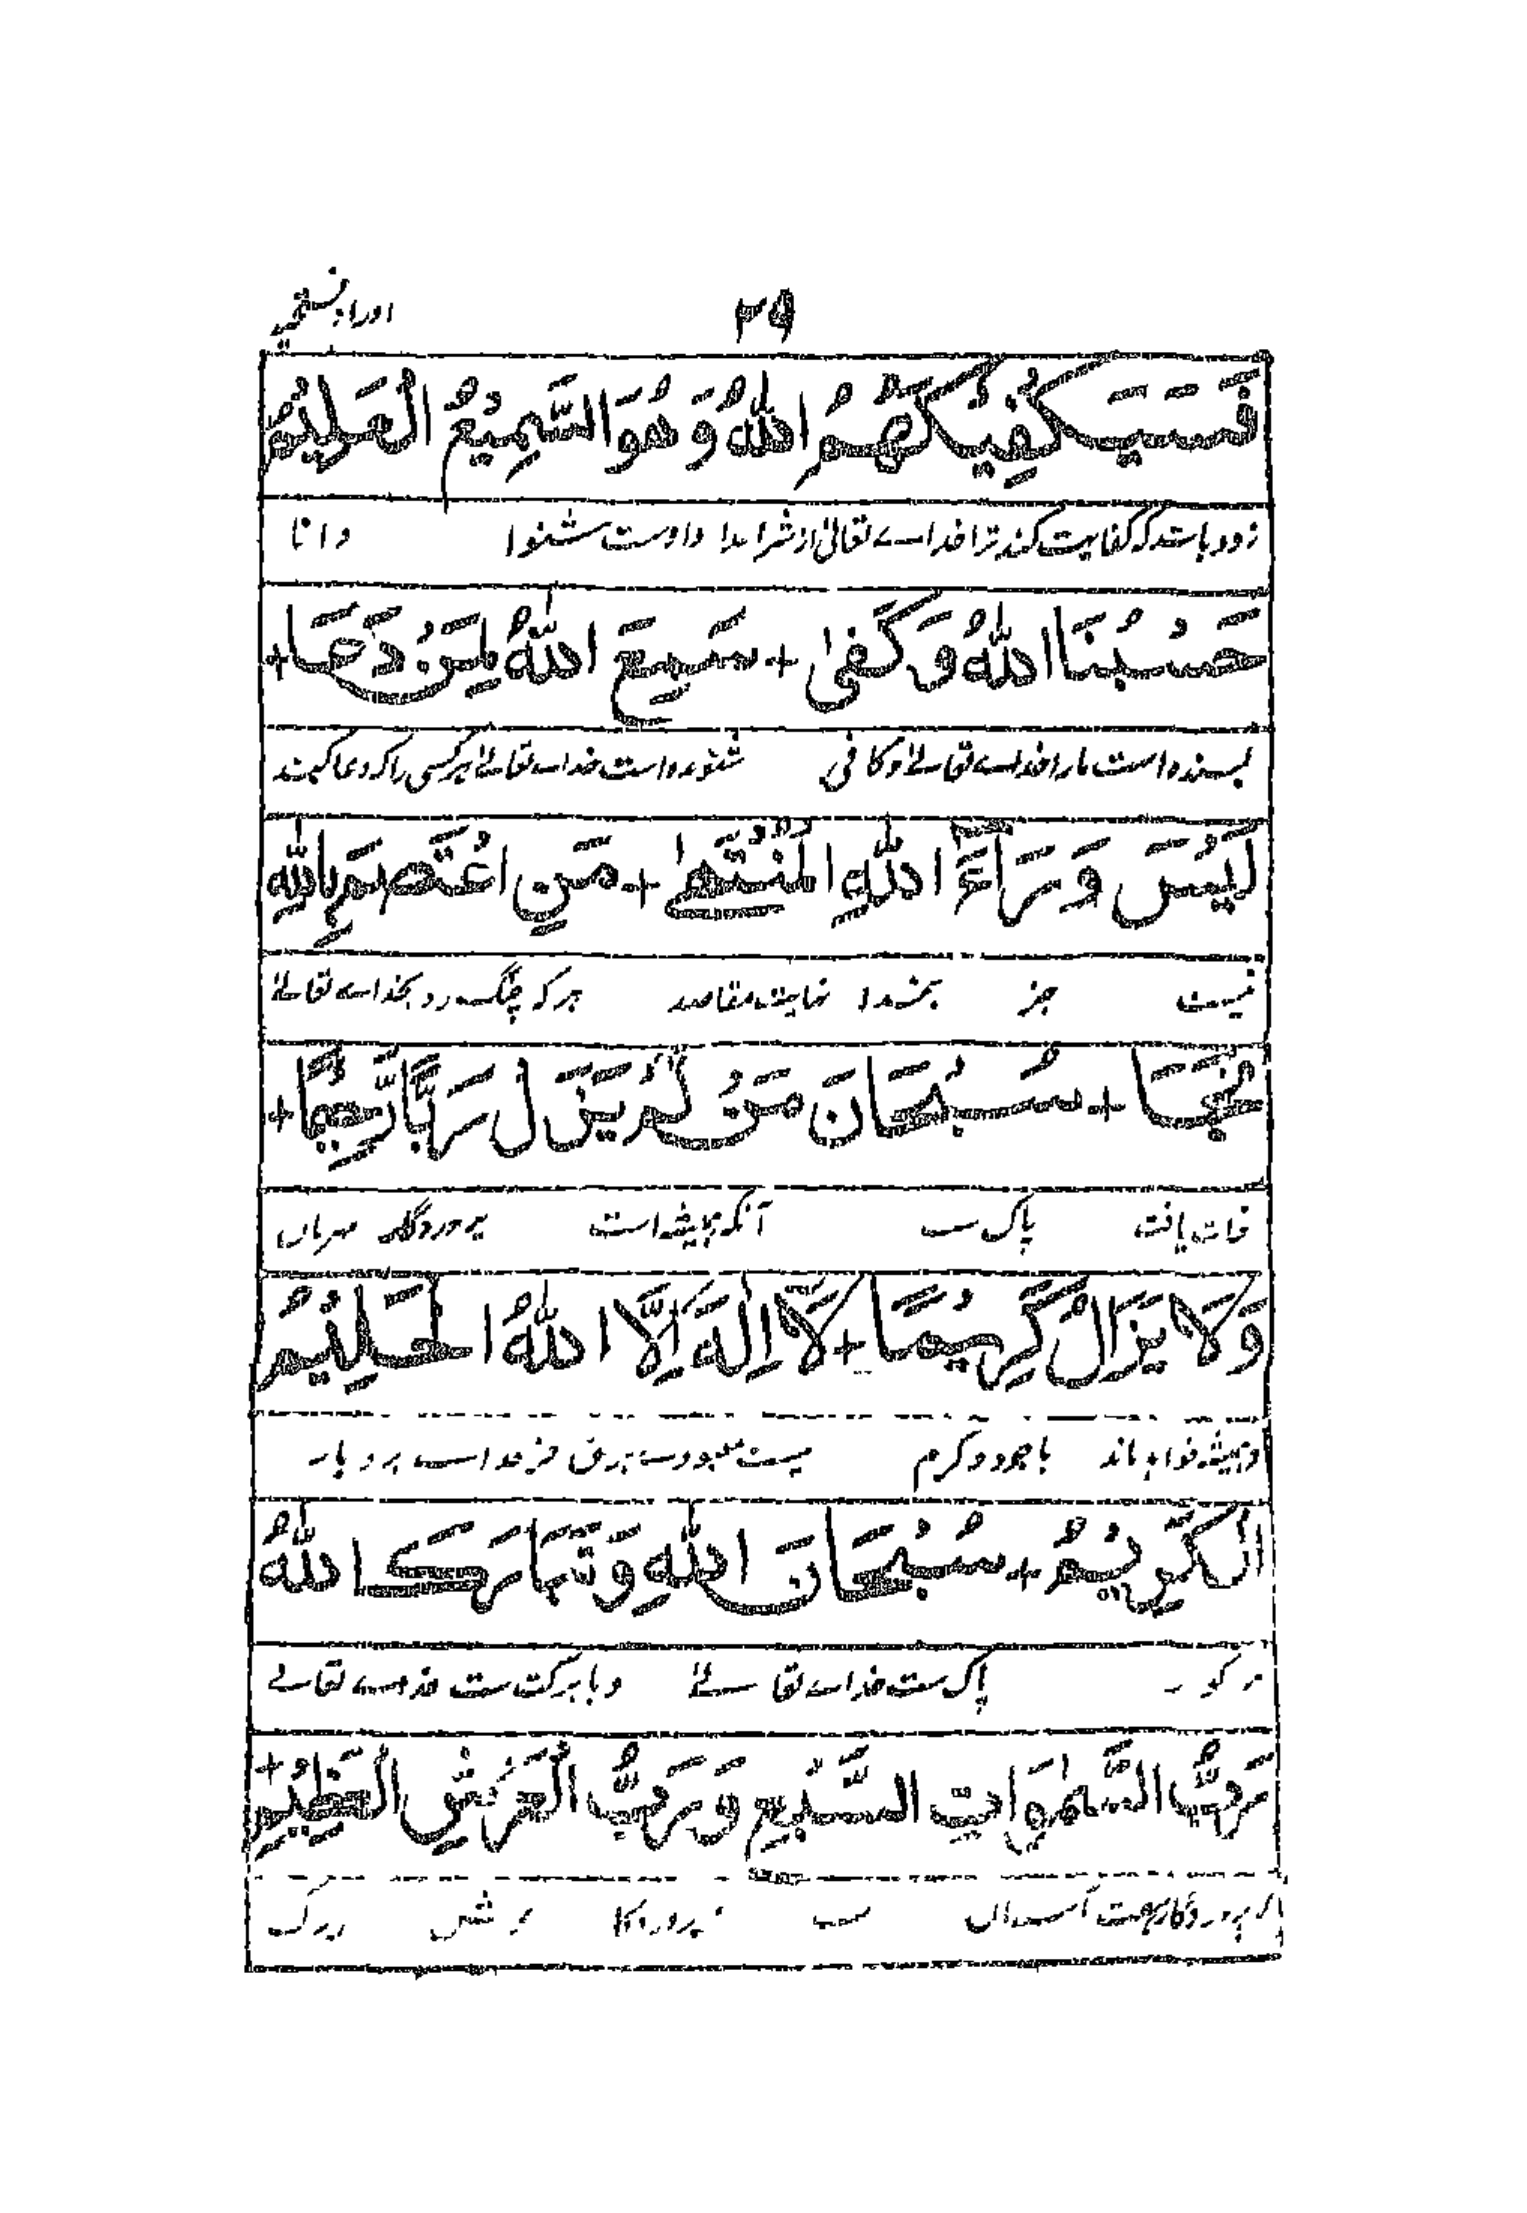 اوراد فتحیه
۲۹
فَسَيَكْفِيْكَهُمُ اللّٰهُ وَهُوَ السَّمِيْعُ الْعَلِيْمُ
زود باشد که کفایت کند ترا خداے تعالیٰ از شر اعدا و اوست شنوا دانا
حَسْبُنَا اللّٰهُ وَكَفٰى + سَمِيعَ اللّٰهُ لِمَنْ دَعَا +
بسنده است مارا خداے تعالےٰ و کافی شنونده است خداے تعالےٰ هر کسی را که دعا کند
لَيْسَ وَرَآءَ اللّٰهِ الْمُنْتَهٰى + مَنِ اعْتَصَمَ بِاللّٰهِ
نیست جز نهایت مقاصد هر که چنگ زد بخداے تعالےٰ
نَجَا + سُبْحَانَ مَنْ لَمْ يَزَلْ رَبًّا رَّحِيْمًا +
نجات یافت پاک ست آنکه همیشه است پروردگار مهربان
وَلَا يَزَالُ كَرِيْمًا + لَآ اِلٰهَ اِلَّا اللّٰهُ الْحَلِيْمُ
و همیشه خواهد ماند باجود و کرم نیست معبودے برحق جز خداے بردبار
الْكَرِيْمُ + سُبْحَانَ اللّٰهِ وَتَبَارَكَ اللّٰهُ
پاک ست خداے تعالےٰ و بابرکت ست خداے تعالےٰ
رَبُّ السَّمٰوَاتِ السَّبْعِ وَرَبُّ الْعَرْشِ الْعَظِيْمِ +
پروردگار هفت آسمان پروردگار عرش بزرگ